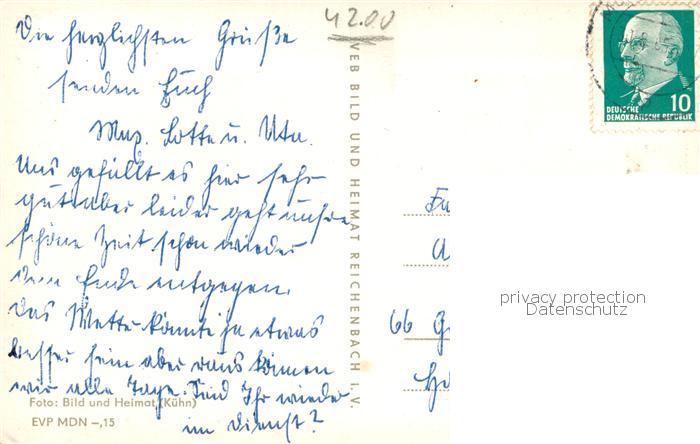 42.00
Die herzlichsten Grüße
senden Euch
Max, Lotte u. Uta.
Uns gefällt es hier sehr
gut aber leider geht unsre
schöne Zeit schon wieder
dem Ende entgegen.
Das Wetter könnte ja etwas
besser sein aber raus können
wir alle Tage. Seid Ihr wieder
im Dienst?
Foto: Bild und Heimat (Kühn)
EVP MDN –,15
VEB BILD UND HEIMAT REICHENBACH I. V.
10
DEUTSCHE
DEMOKRATISCHE REPUBLIK
66 G
privacy protection
Datenschutz